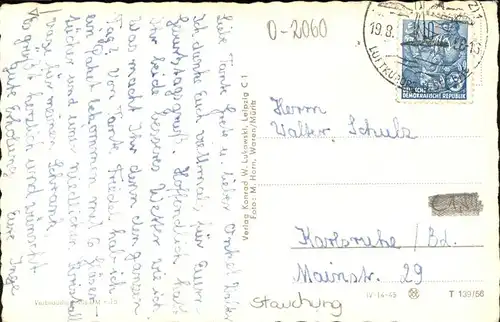 0-2060
19.8.
LUFTKURORT
DEUTSCHE
DEMOKRATISCHE REPUBLIK
Liebe Tante Grete u. lieber Onkel Walter
Ich danke Euch vielmals für Euern
Geburtstagsgruß. Hoffendlich habt
Ihr beide besseres Wetter wie ich.
Was macht Ihr denn den ganzen
Tag? Von Tante Friedel hab ich
ein Paket bekommen mit 6
tücher und einen niedlichen
was für meinen Schrank.
Es grüßt herzlich und wünscht
gute Erholung Eure Inge
Verlag Konrad W. Lukowski, Leipzig C 1
Foto: M. Horn, Waren/Müritz
Herrn
Walter Schulz
Karlsruhe / Bd.
Mainstr. 29
Stauchung
IV-14-45
T 139/56